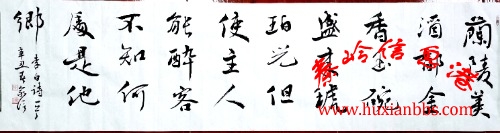 蘭陵美
酒郁金
香玉碗
盛來琥
珀光但
使主人
能醉客
不知何
處是他
鄉
李白詩
辛丑
www.huxianbbs.com